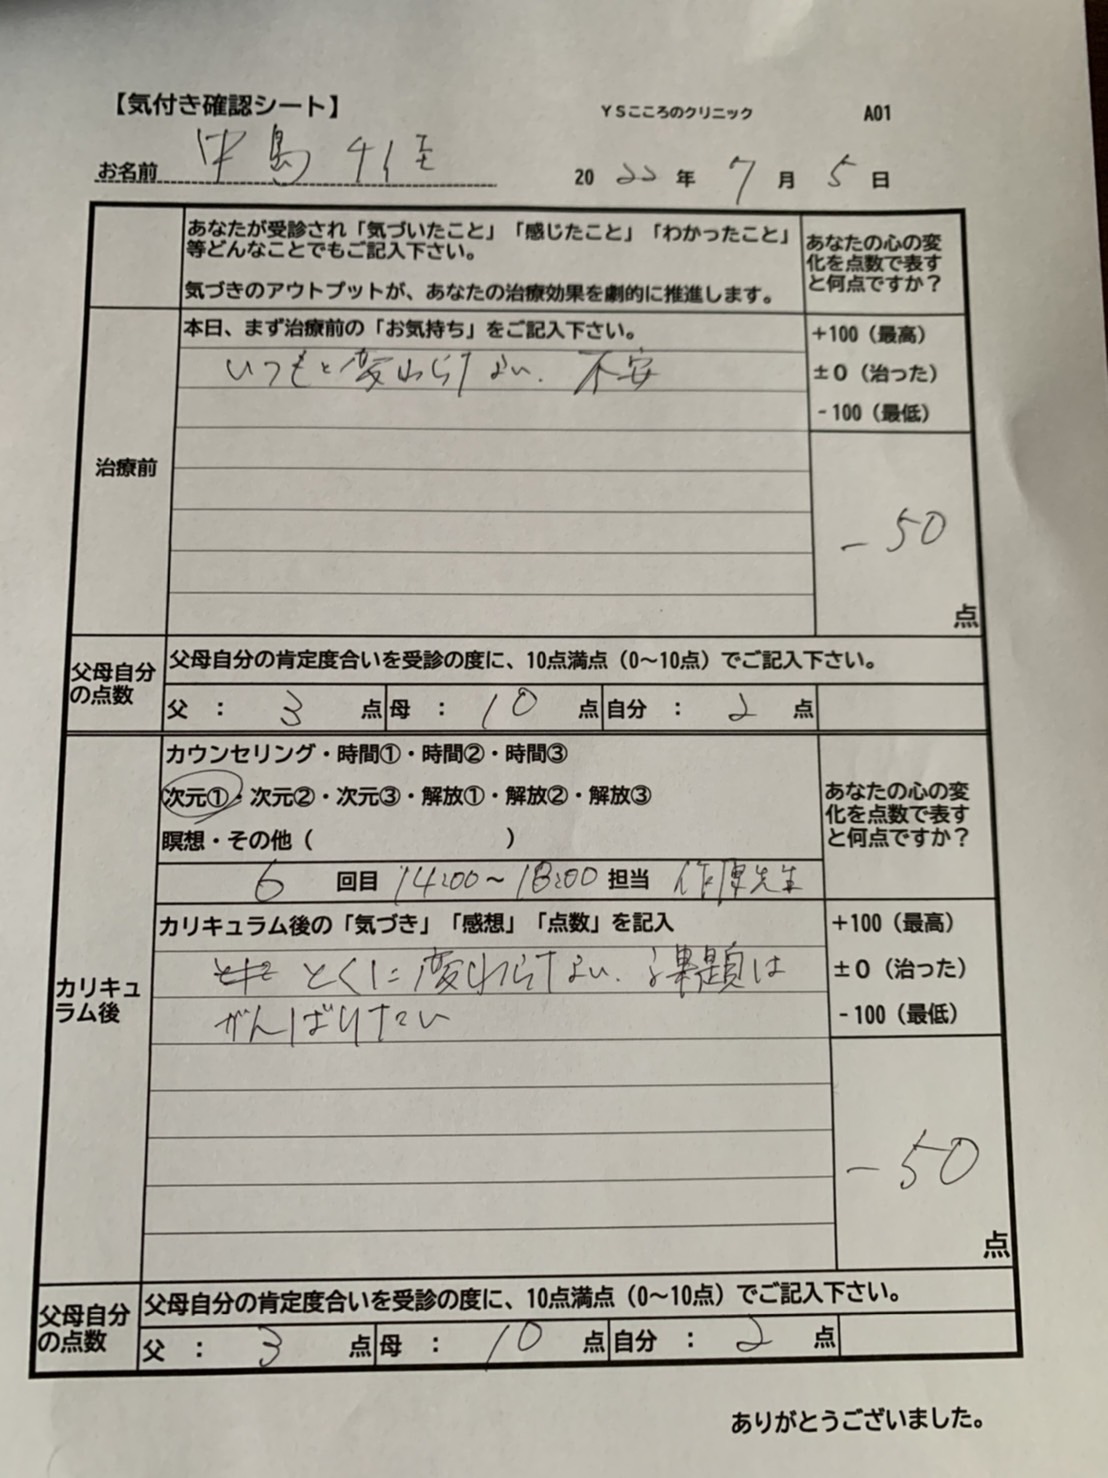 【気付き確認シート】 YSこころのクリニック A01
お名前 中島 2022年 7月 5日
あなたが受診され「気づいたこと」「感じたこと」「わかったこと」
等どんなことでもご記入下さい。
気づきのアウトプットが、あなたの治療効果を劇的に推進します。
あなたの心の変
化を点数で表す
と何点ですか？
治療前
本日、まず治療前の「お気持ち」をご記入下さい。
いつもと変わらない、不安
+100（最高）
±0（治った）
-100（最低）
-50
点
父母自分
の点数
父母自分の肯定度合いを受診の度に、10点満点（0～10点）でご記入下さい。
父 ： 3 点 母 ： 10 点 自分 ： 2 点
カリキュ
ラム後
カウンセリング・時間①・時間②・時間③
次元①・次元②・次元③・解放①・解放②・解放③
瞑想・その他（ ）
あなたの心の変
化を点数で表す
と何点ですか？
6 回目 14:00～18:00 担当 先生
カリキュラム後の「気づき」「感想」「点数」を記入
とくに変わらない、課題は
がんばりたい
+100（最高）
±0（治った）
-100（最低）
-50
点
父母自分
の点数
父母自分の肯定度合いを受診の度に、10点満点（0～10点）でご記入下さい。
父 ： 3 点 母 ： 10 点 自分 ： 2 点
ありがとうございました。